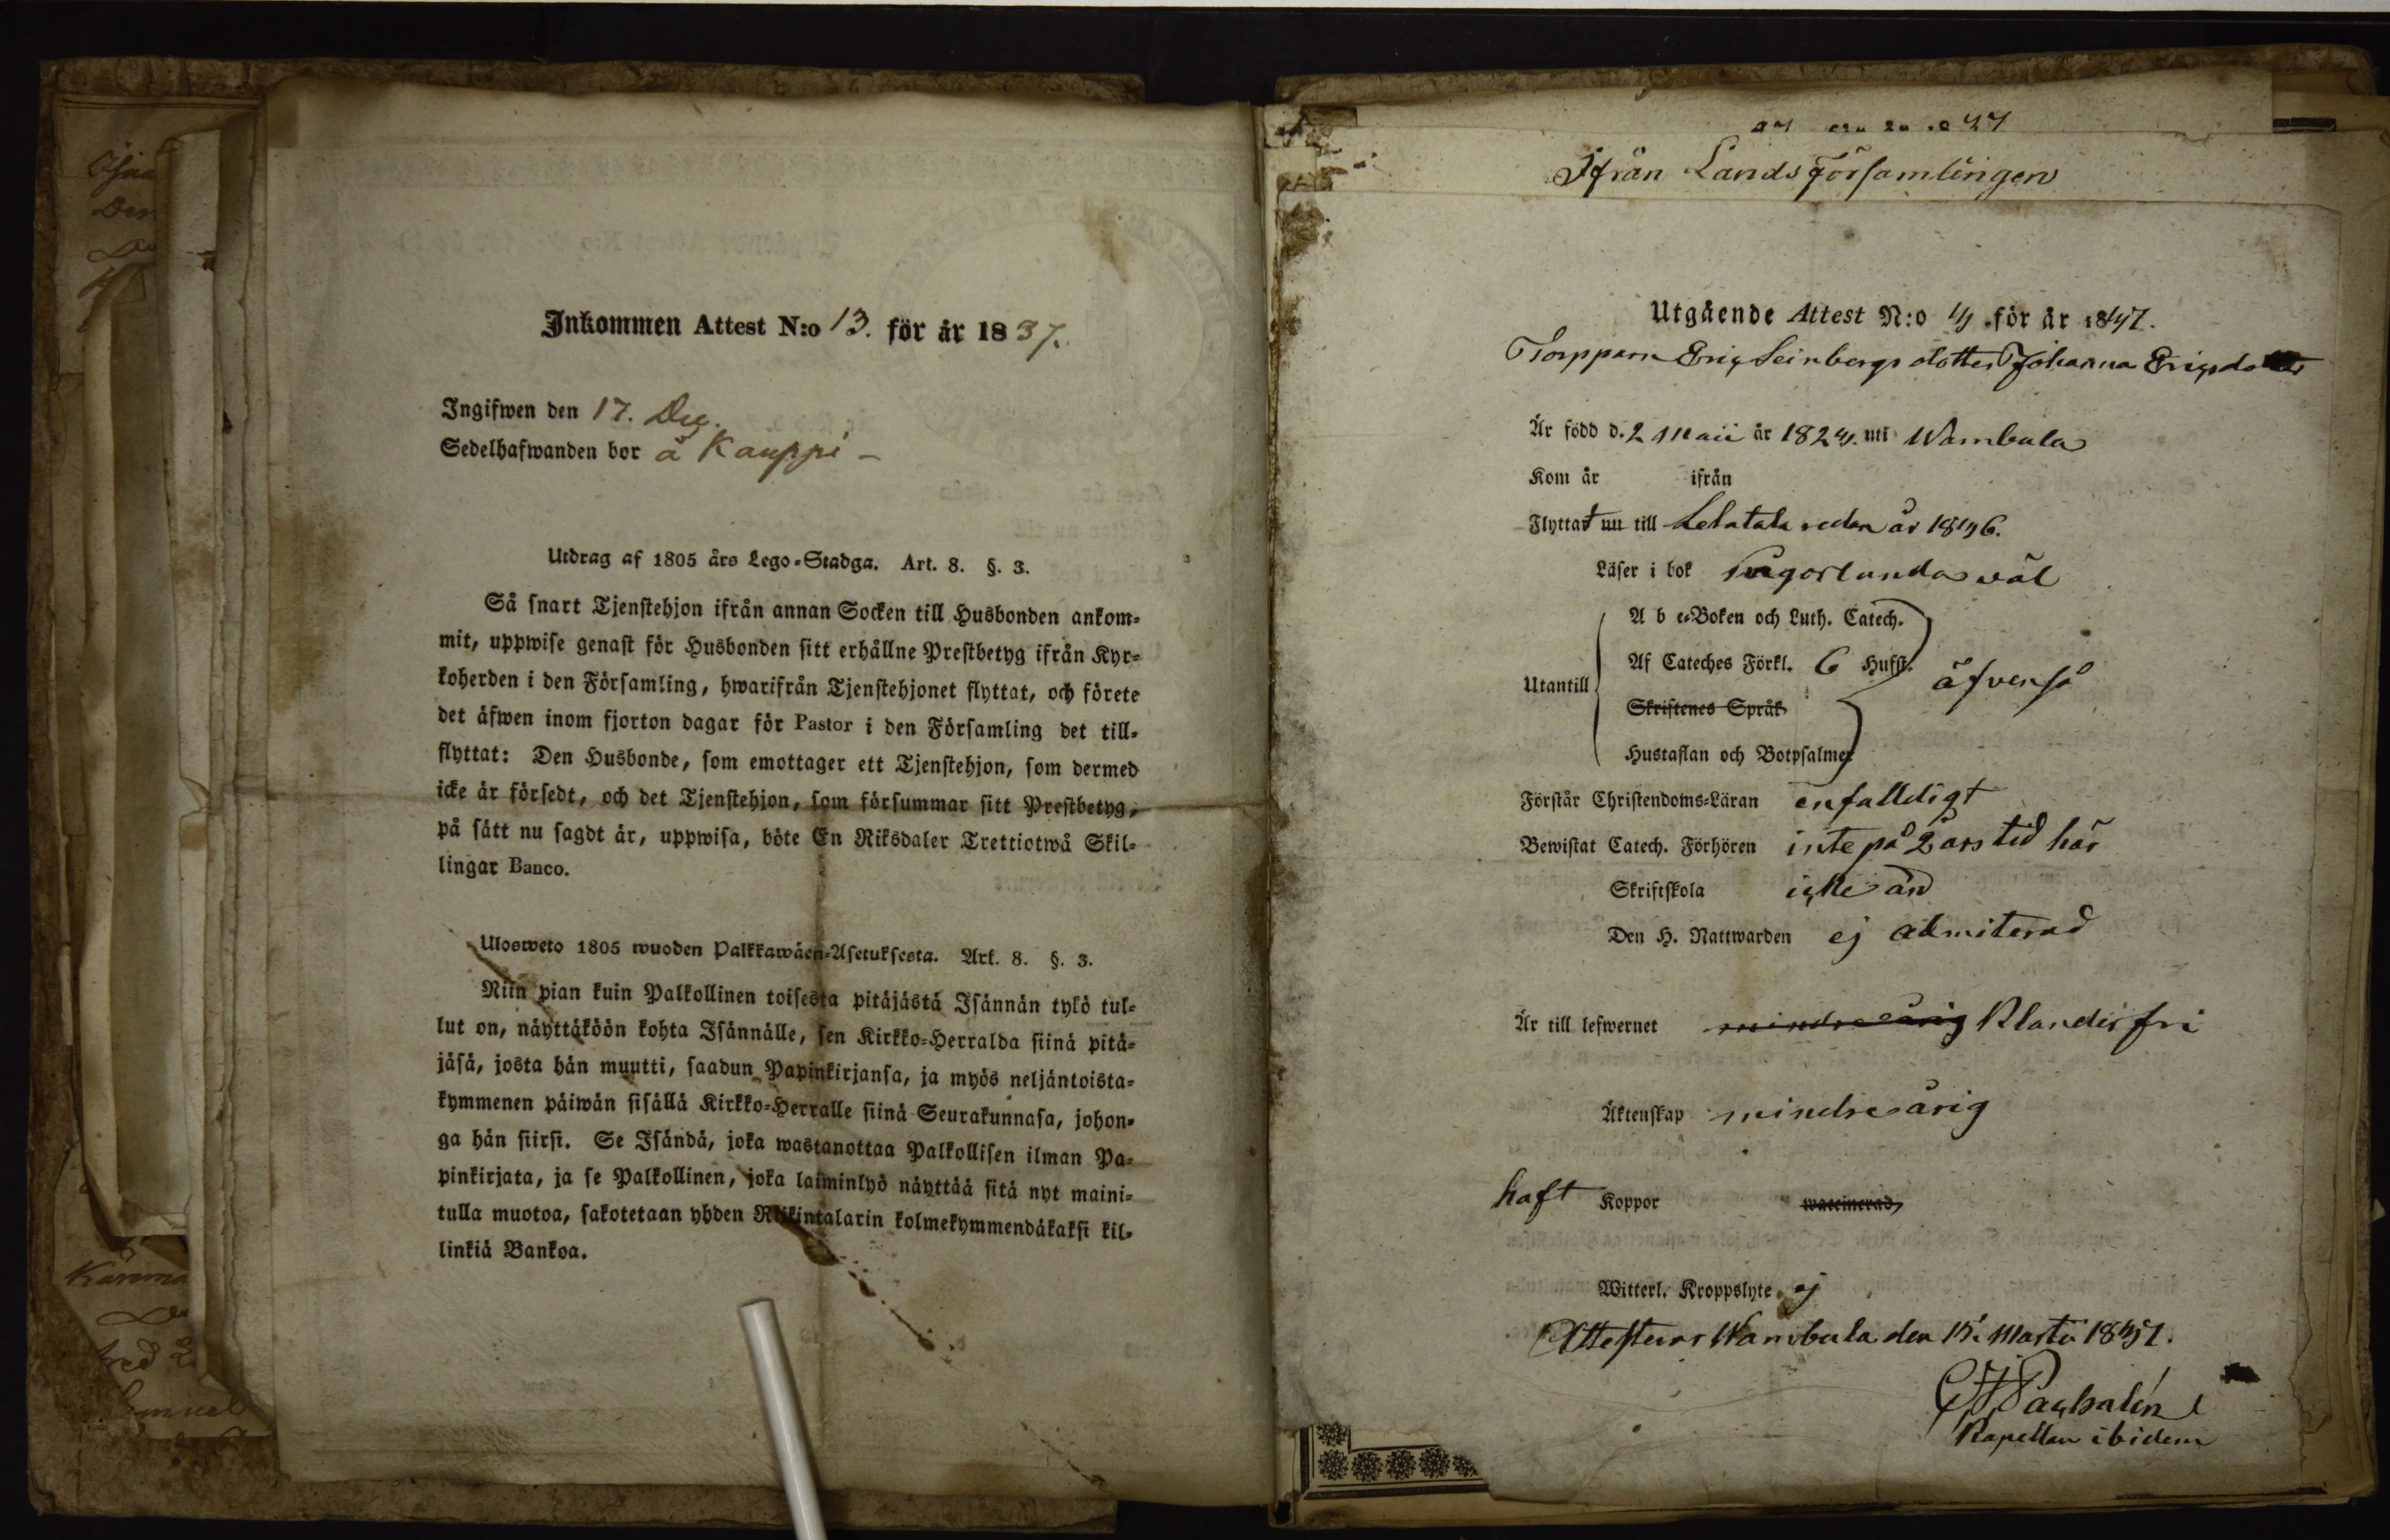 Inkommen Attest N:o 13. för år 1837.
Ingifwen den 17. Dec.
Sedelhafwanden bor å Kauppi –
Utdrag af 1805 års Lego-Stadga. Art. 8. §. 3.
Så snart Tjenstehjon ifrån annan Socken till Husbonden ankom-
mit, uppwise genast för Husbonden sitt erhållne Prestbetyg ifrån Kyr-
koherden i den Församling, hwarifrån Tjenstehjonet flyttat, och förete
det äfwen inom fjorton dagar för Pastor i den Församling det till-
flyttat: Den Husbonde, som emottager ett Tjenstehjon, som dermed
icke är försedt, och det Tjenstehjon, som försummar sitt Prestbetyg,
på sätt nu sagdt är, uppwisa, böte En Riksdaler Trettiotwå Skil-
lingar Banco.
Ulosweto 1805 wuoden Palkkawäen-Asetuksesta. Art. 8. §. 3.
Niin pian kuin Palkollinen toisesta pitäjästä Isännän tykö tul-
lut on, näyttäköön kohta Isännälle, sen Kirkko-Herralda siinä pitä-
jäsä, josta hän muutti, saadun Papinkirjansa, ja myös neljäntoista-
kymmenen päiwän sisällä Kirkko-Herralle siinä Seurakunnasa, johon-
ga hän siirsi. Se Isändä, joka wastanottaa Palkollisen ilman Pa-
pinkirjata, ja se Palkollinen, joka laiminlyö näyttää sitä nyt maini-
tulla muotoa, sakotetaan yhden Riikintalarin kolmekymmendäkaksi kil-
linkiä Bankoa.
Ifrån Landsförsamlingen
Utgående Attest N:o 4 för år 1847.
Torpparn Eric Leinbergs dotter Johanna Ericsdotter
Är född d. 2 Maii år 1824. uti Wambula
Kom år ifrån
Flyttat nu till sedan år 1846.
Läser i bok wäl
Utantill
A b c-Boken och Luth. Catech.
Af Cateches Förkl. 6 Hufst.
äfvenså
Skriftenes Språk
Hustaflan och Botpsalmer
Förstår Christendoms-Läran enfalldigt
Bewistat Catech. Förhören inte på 2 års tid här
Skriftskola icke än
Den H. Nattwarden ej admiterad
Är till lefwernet mindreårig Klanderfri
Äktenskap mindreårig
haft Koppor waccinerad,
Witterl. Kroppslyte ej
Attesterar Wambula den 15 Martii 1847.
Kapellan ibidem